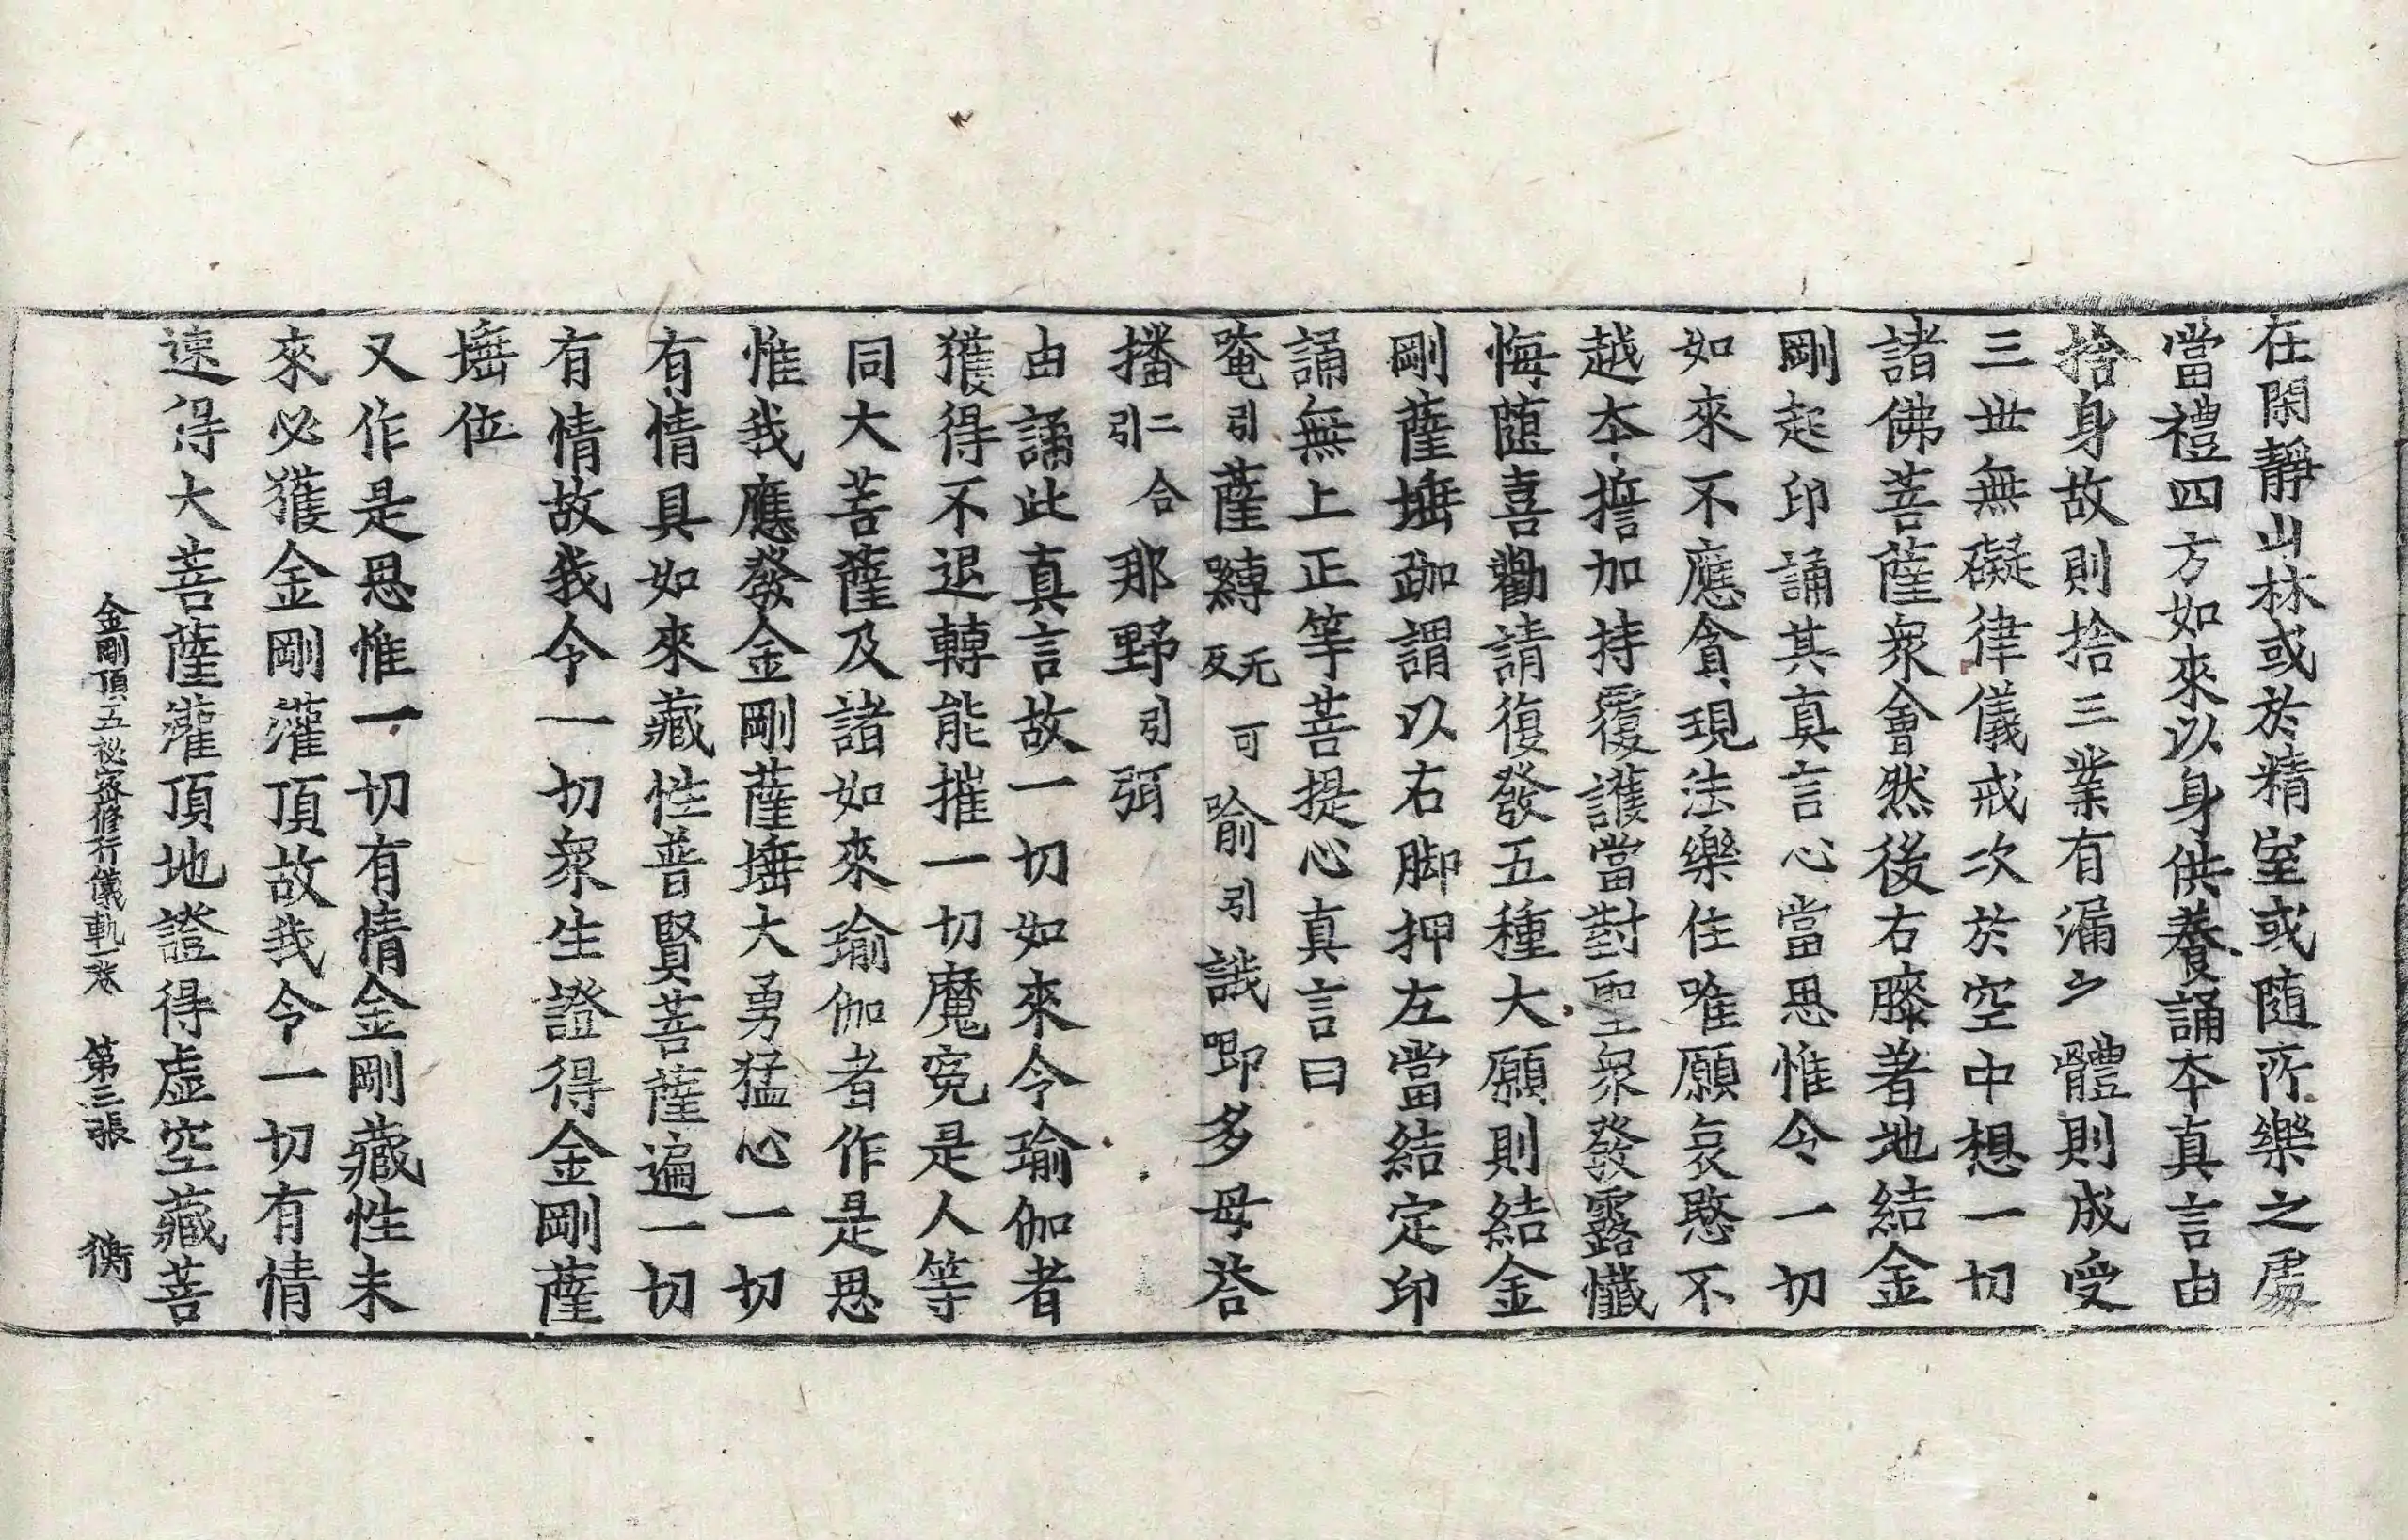 在閑靜山林或於精室或隨所樂之處
當禮四方如來以身供養誦本真言由
捨身故則捨三業有漏之體則成受
三世無礙律儀戒次於空中想一切
諸佛菩薩衆會然後右膝著地結金
剛起印誦其真言心當思惟令一切
如來不應貪現法樂住唯願哀愍不
越本誓加持覆護當對聖衆發露懺
悔隨喜勸請復發五種大願則結金
剛薩埵跏謂以右脚押左當結定印
誦無上正等菩提心真言曰
唵引薩嚩无可反喻引誐唧多母荅
播二合引那野引弭
由誦此真言故一切如來令瑜伽者
獲得不退轉能摧一切魔寃是人等
同大菩薩及諸如來瑜伽者作是思
惟我應發金剛薩埵大勇猛心一切
有情具如來藏性普賢菩薩遍一切
有情故我令一切衆生證得金剛薩
埵位
又作是思惟一切有情金剛藏性未
來必獲金剛灌頂故我令一切有情
速得大菩薩灌頂地證得虛空藏菩
金剛頂五祕密修行儀軌一卷 第三張 衡